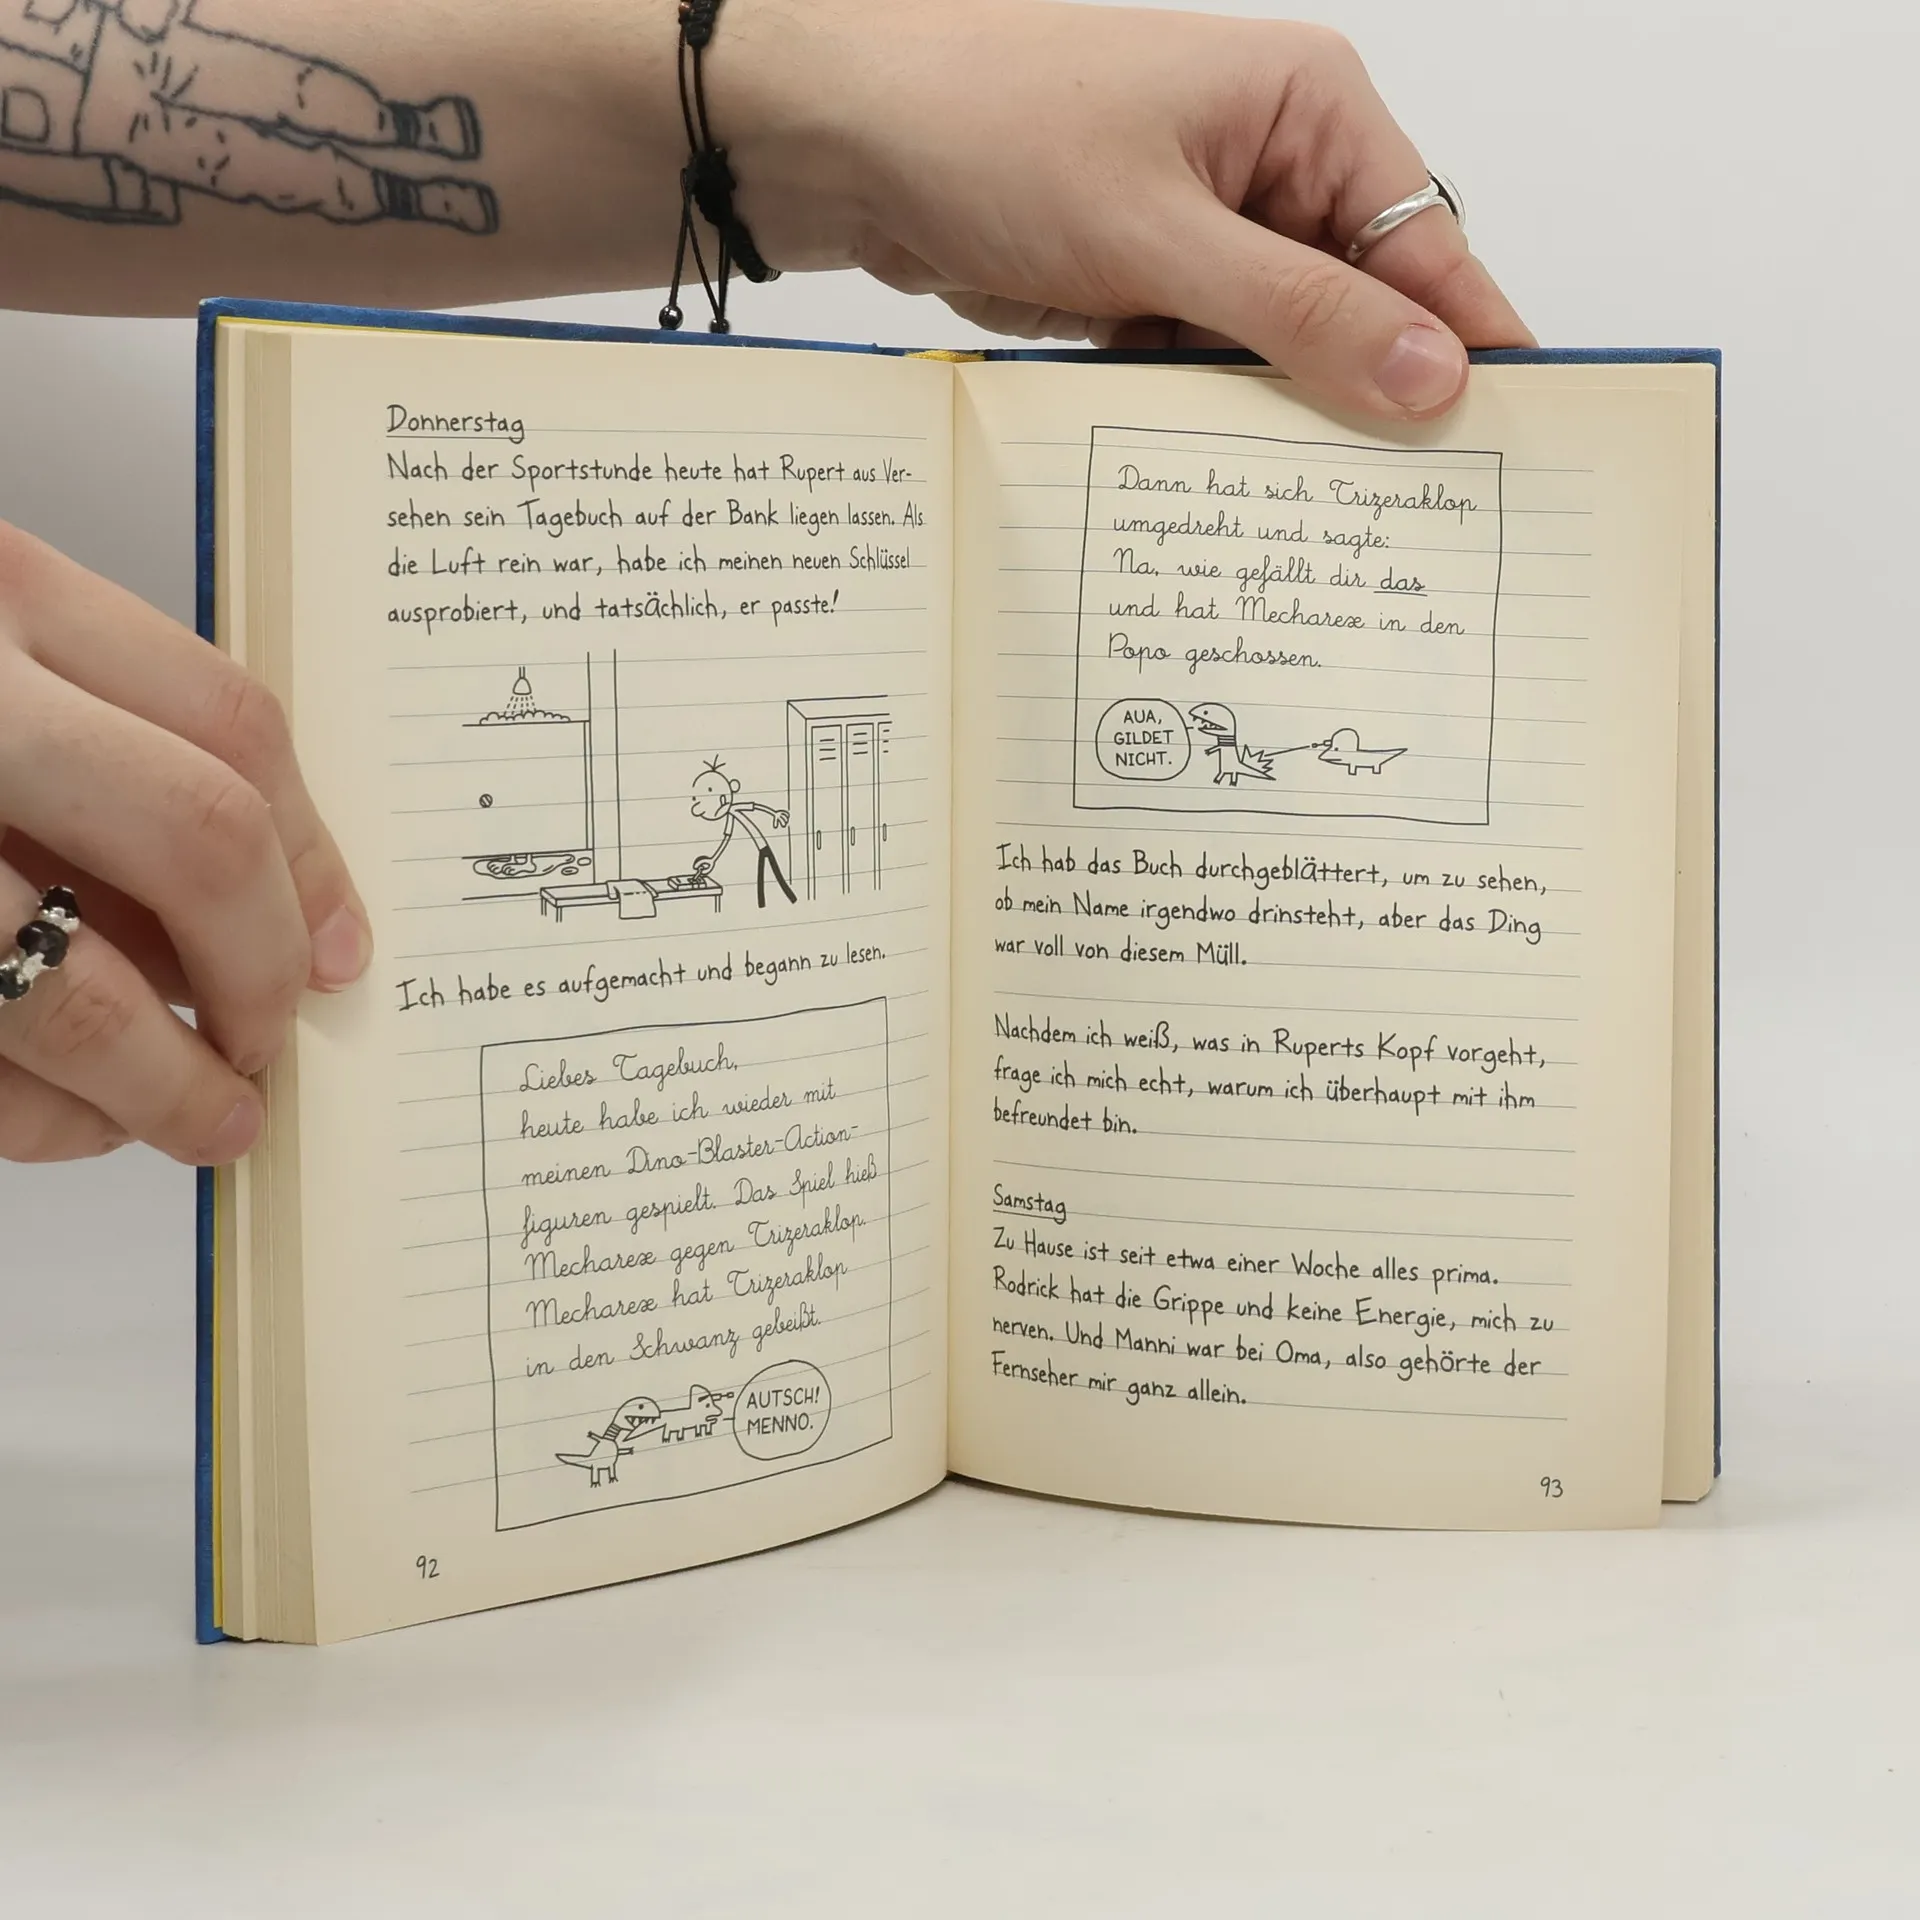 Donnerstag
Nach der Sportstunde heute hat Rupert aus Ver-
sehen sein Tagebuch auf der Bank liegen lassen. Als
die Luft rein war, habe ich meinen neuen Schlüssel
ausprobiert, und tatsächlich, er passte!
Ich habe es aufgemacht und begann zu lesen.
Liebes Tagebuch,
heute habe ich wieder mit
meinen Dino-Blaster-Action-
figuren gespielt. Das Spiel hieß
Mecharex gegen Trizeraklop.
Mecharex hat Trizeraklop
in den Schwanz gebeißt.
AUTSCH!
MENNO.
92
Dann hat sich Trizeraklop
umgedreht und sagte:
Na, wie gefällt dir das
und hat Mecharex in den
Popo geschossen.
AUA,
GILDET
NICHT.
Ich hab das Buch durchgeblättert, um zu sehen,
ob mein Name irgendwo drinsteht, aber das Ding
war voll von diesem Müll.
Nachdem ich weiß, was in Ruperts Kopf vorgeht,
frage ich mich echt, warum ich überhaupt mit ihm
befreundet bin.
Samstag
Zu Hause ist seit etwa einer Woche alles prima.
Rodrick hat die Grippe und keine Energie, mich zu
nerven. Und Manni war bei Oma, also gehörte der
Fernseher mir ganz allein.
93